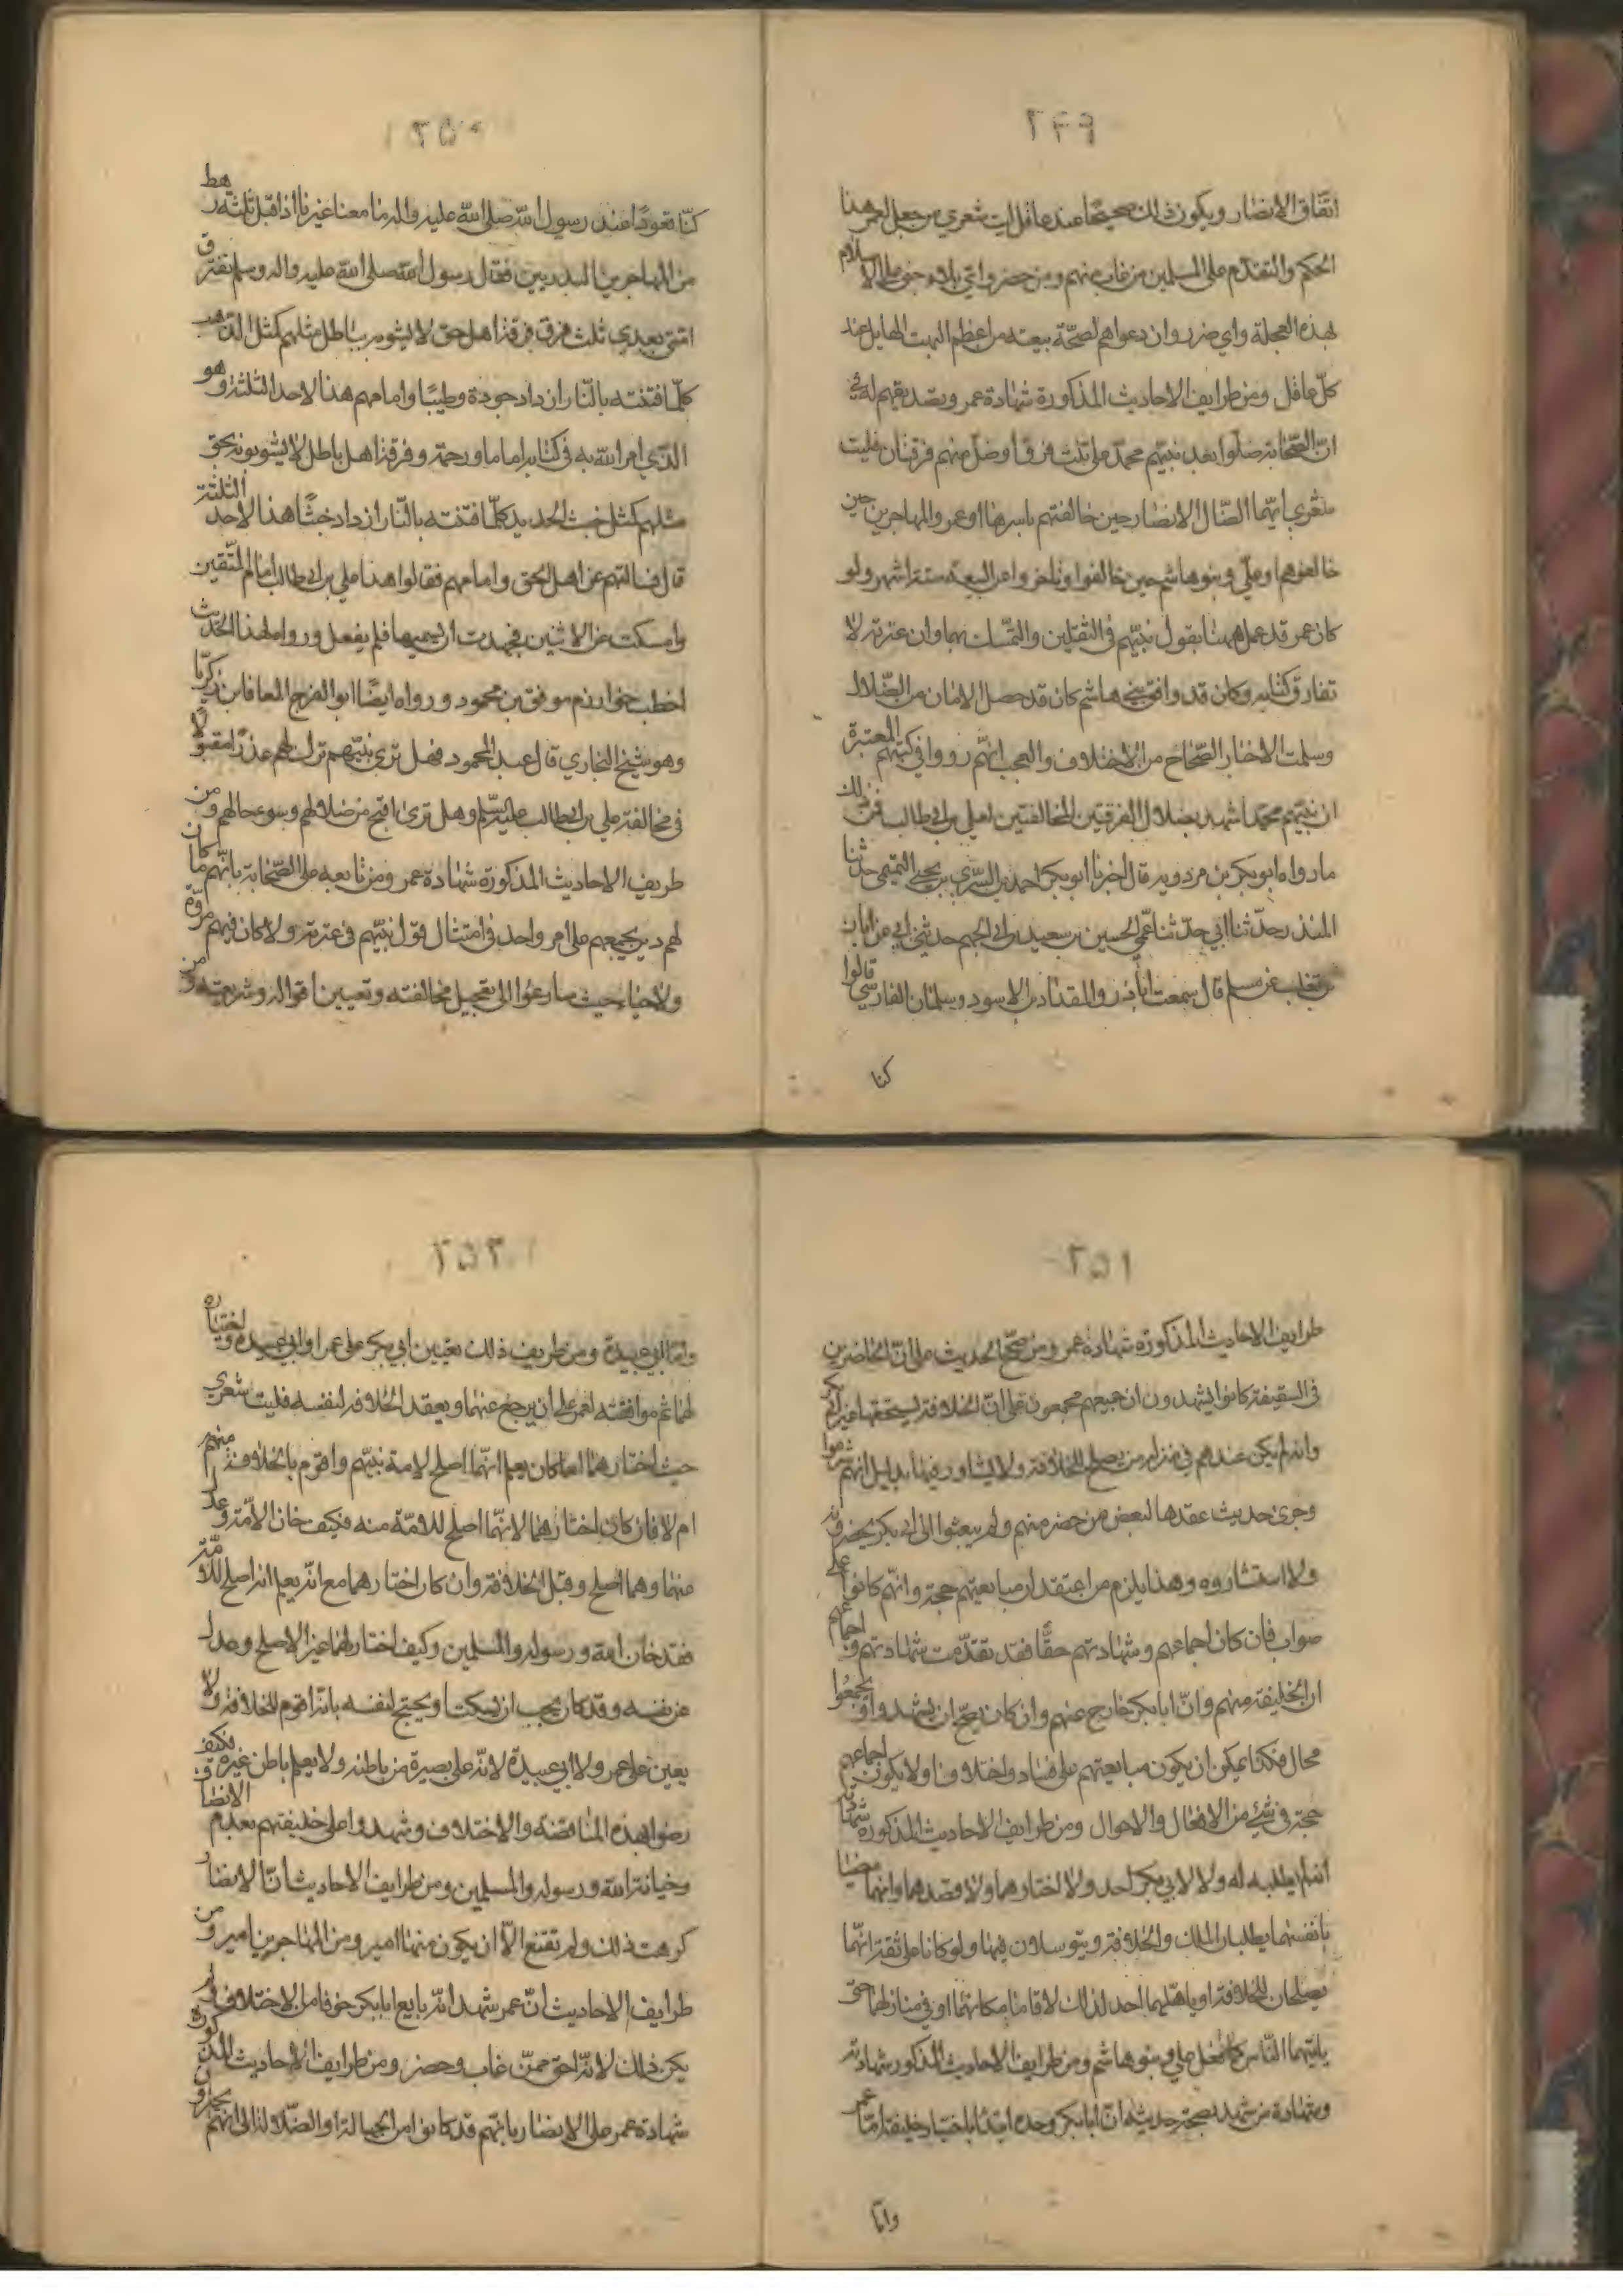 ٢٤٩
اتفاق الانصار ويكون ذلك صحيحا عند عاقل ليت شعري من جعل لعمر هذا
الحكم والتقدم على المسلمين من غاب منهم ومن حضر واي بلاء جنى على الاسلام
بهذه العجلة واي ضرر وان دعواهم لصحة بيعته من اعظم البهت الهايل عند
كل عاقل ومن طرايف الاحاديث المذكورة شهادة عمر وتصديقهم له في
ان الصحابة ضلوا بعد نبيهم محمد على ثلث فرق اوضل منهم فرقتان فليت
شعري ايهما الضال الانصار حين خالفتهم باسرها او عمر والمهاجرين حين
خالفوهم او علي وبنو هاشم حين خالفوا وتاخروا عن البيعة ستة اشهر ولو
كان عمر قد عمل ههنا بقول نبيهم في الثقلين والتمسك بهما وان عترته لا
تفارق كتابه وكان قد وافق بني هاشم كان قد حصل الامان من الضلال
وسلمت الاخبار الصحاح من الاختلاف والعجب انهم رووا في كتبهم المعتبرة
ان نبيهم محمدا شهد بضلال الفرقتين المخالفتين لعلي بن ابي طالب فمن ذلك
ما رواه ابو بكر بن مردويه قال اخبرنا ابو بكر احمد بن السري بن يحيى التميمي حدثنا
المنذر حدثنا ابي حدثنا عمي الحسين بن سعيد بن ابي الجهم حدثني ابي عن ابان
بن تغلب عن مسلم قال سمعت اباذر والمقداد بن الاسود وسلمان الفارسي قالوا
كنا
٢٥٠
كنا قعودا عند رسول الله صلى الله عليه واله ما معنا غيرنا اذ اقبل ثلثة رهط
من المهاجرين البدريين فقال رسول الله صلى الله عليه واله وسلم تفترق
امتي بعدي ثلث فرق فرقة اهل حق لا يشوبه باطل مثلهم كمثل الذهب
كلما فتنته بالنار ازداد جودة وطيبا وامامهم هذا لاحد الثلثة وهو
الذي امر الله به في كتابه اماما ورحمة وفرقة اهل باطل لا يشوبونه بحق
مثلهم كمثل خبث الحديد كلما فتنته بالنار ازداد خبثا هذا لاحد الثلثة
قال فسالتهم عن اهل الحق وامامهم فقالوا هذا علي بن ابي طالب امام المتقين
وامسكت عن الاثنين فجهدت ان يسميهما فلم يفعل وروى هذا الحديث
اخطب خوارزم موفق بن محمود ورواه ايضا ابو الفرج المعافا بن زكريا
وهو شيخ البخاري قال عبد المحمود فهل ترى نبيهم ترك لهم عذرا مقبولا
في مخالفة علي بن ابي طالب عليه السلم وهل ترى اقبح من ضلالهم وسوء حالهم ومن
طريف الاحاديث المذكورة شهادة عمر ومن تابعه على الصحابة بانهم ما كان
لهم دين يجمعهم على امر واحد في امتثال قول نبيهم في عترته ولا كان فيهم مروة
ولا حياء حيث سارعوا الى تعجيل مخالفته وتغيير اقواله وشريعته ومن
٢٥١
طرايف الاحاديث المذكورة شهادة عمر ومن صحح الحديث على ان الحاضرين
في السقيفة كانوا يشهدون ان جميعهم مجمعون على ان الخلافة يستحقها غير ابي بكر
وانه لم يكن عندهم في منزلة من يصلح للخلافة ولا يشاور فيها بدليل انهم شرعوا
وجرى حديث عقدها لبعض من حضر منهم ولم يبعثوا الى ابي بكر يحضرونه
ولا استشاروه وهذا يلزم من اعتقد ان مبايعتهم حجة وانهم كانوا على
صواب فان كان اجماعهم وشهادتهم حقا فقد تقدمت شهادتهم واجماعهم
ان الخليفة منهم وان ابا بكر خارج عنهم وان كان يصح ان يشهدوا او يجمعوا
محال فكذا يمكن ان يكون مبايعتهم على فساد واختلافا ولا يكون اجماعهم
حجة في شئ من الافعال والاحوال ومن طرايف الاحاديث المذكورة شهادته
انه لم يطلبه له ولا لابي بكر احد ولا اختارهما ولا قصدهما وانهما مضيا
بانفسهما يطلبان الملك والخلافة ويتوسلان فيها ولو كانا على ثقة انهما
يصلحان للخلافة او ياهلهما احد لذلك لاقاما مكانهما او في منازلهما حتى
ياتيهما الناس كما فعل علي وبنو هاشم ومن طرايف الاحاديث المذكور شهادته
وشهادة من شهد بصحة حديثه ان ابا بكر وحده ابتدا باختيار خليفة اما عمر
واما
٢٥٢
واما ابي عبيدة ومن طريف ذلك تعيين ابي بكر على عمر او ابي عبيدة واختياره
لهما ثم موافقته لعمر على ان يرجع عنهما ويعقد الخلافة لنفسه فليت شعري
حيث اختارهما لها كان يعلم انهما اصلح لامة نبيهم واقوم بالخلافة منهم
ام لا فان كان اختارهما لانهما اصلح للامة منه فكيف خان الامة وعدل
منهما وهما اصلح وقبل الخلافة وان كان اختارهما مع انه يعلم انه اصلح للامة
فقد خان الله ورسوله والمسلمين وكيف اختار لهما غير الاصلح وعدل
عن نفسه وقد كان يجب ان يسكت او يحتج لنفسه بانه اقوم للخلافة ولا
يعين على عمر ولا ابي عبيدة لانه على بصيرة من باطنه ولا يعلم باطن غيره فكيف
رضوا بهذه المناقضة والاختلاف وشهدوا على خليفتهم بعدم الانصاف و
وخيانة الله ورسوله والمسلمين ومن طرايف الاحاديث ان الانصار
كرهت ذلك ولم تقنع الا ان يكون منها امير ومن المهاجرين امير ومن
طرايف الاحاديث ان عمر شهد انه بايع ابا بكر خوفا من الاختلاف ولم
يكن ذلك لانه احق ممن غاب وحضر ومن طرايف الاحاديث المذكورة
شهادة عمر على الانصار بانهم قد كانوا من الجهالة او الضلالة الى انهم